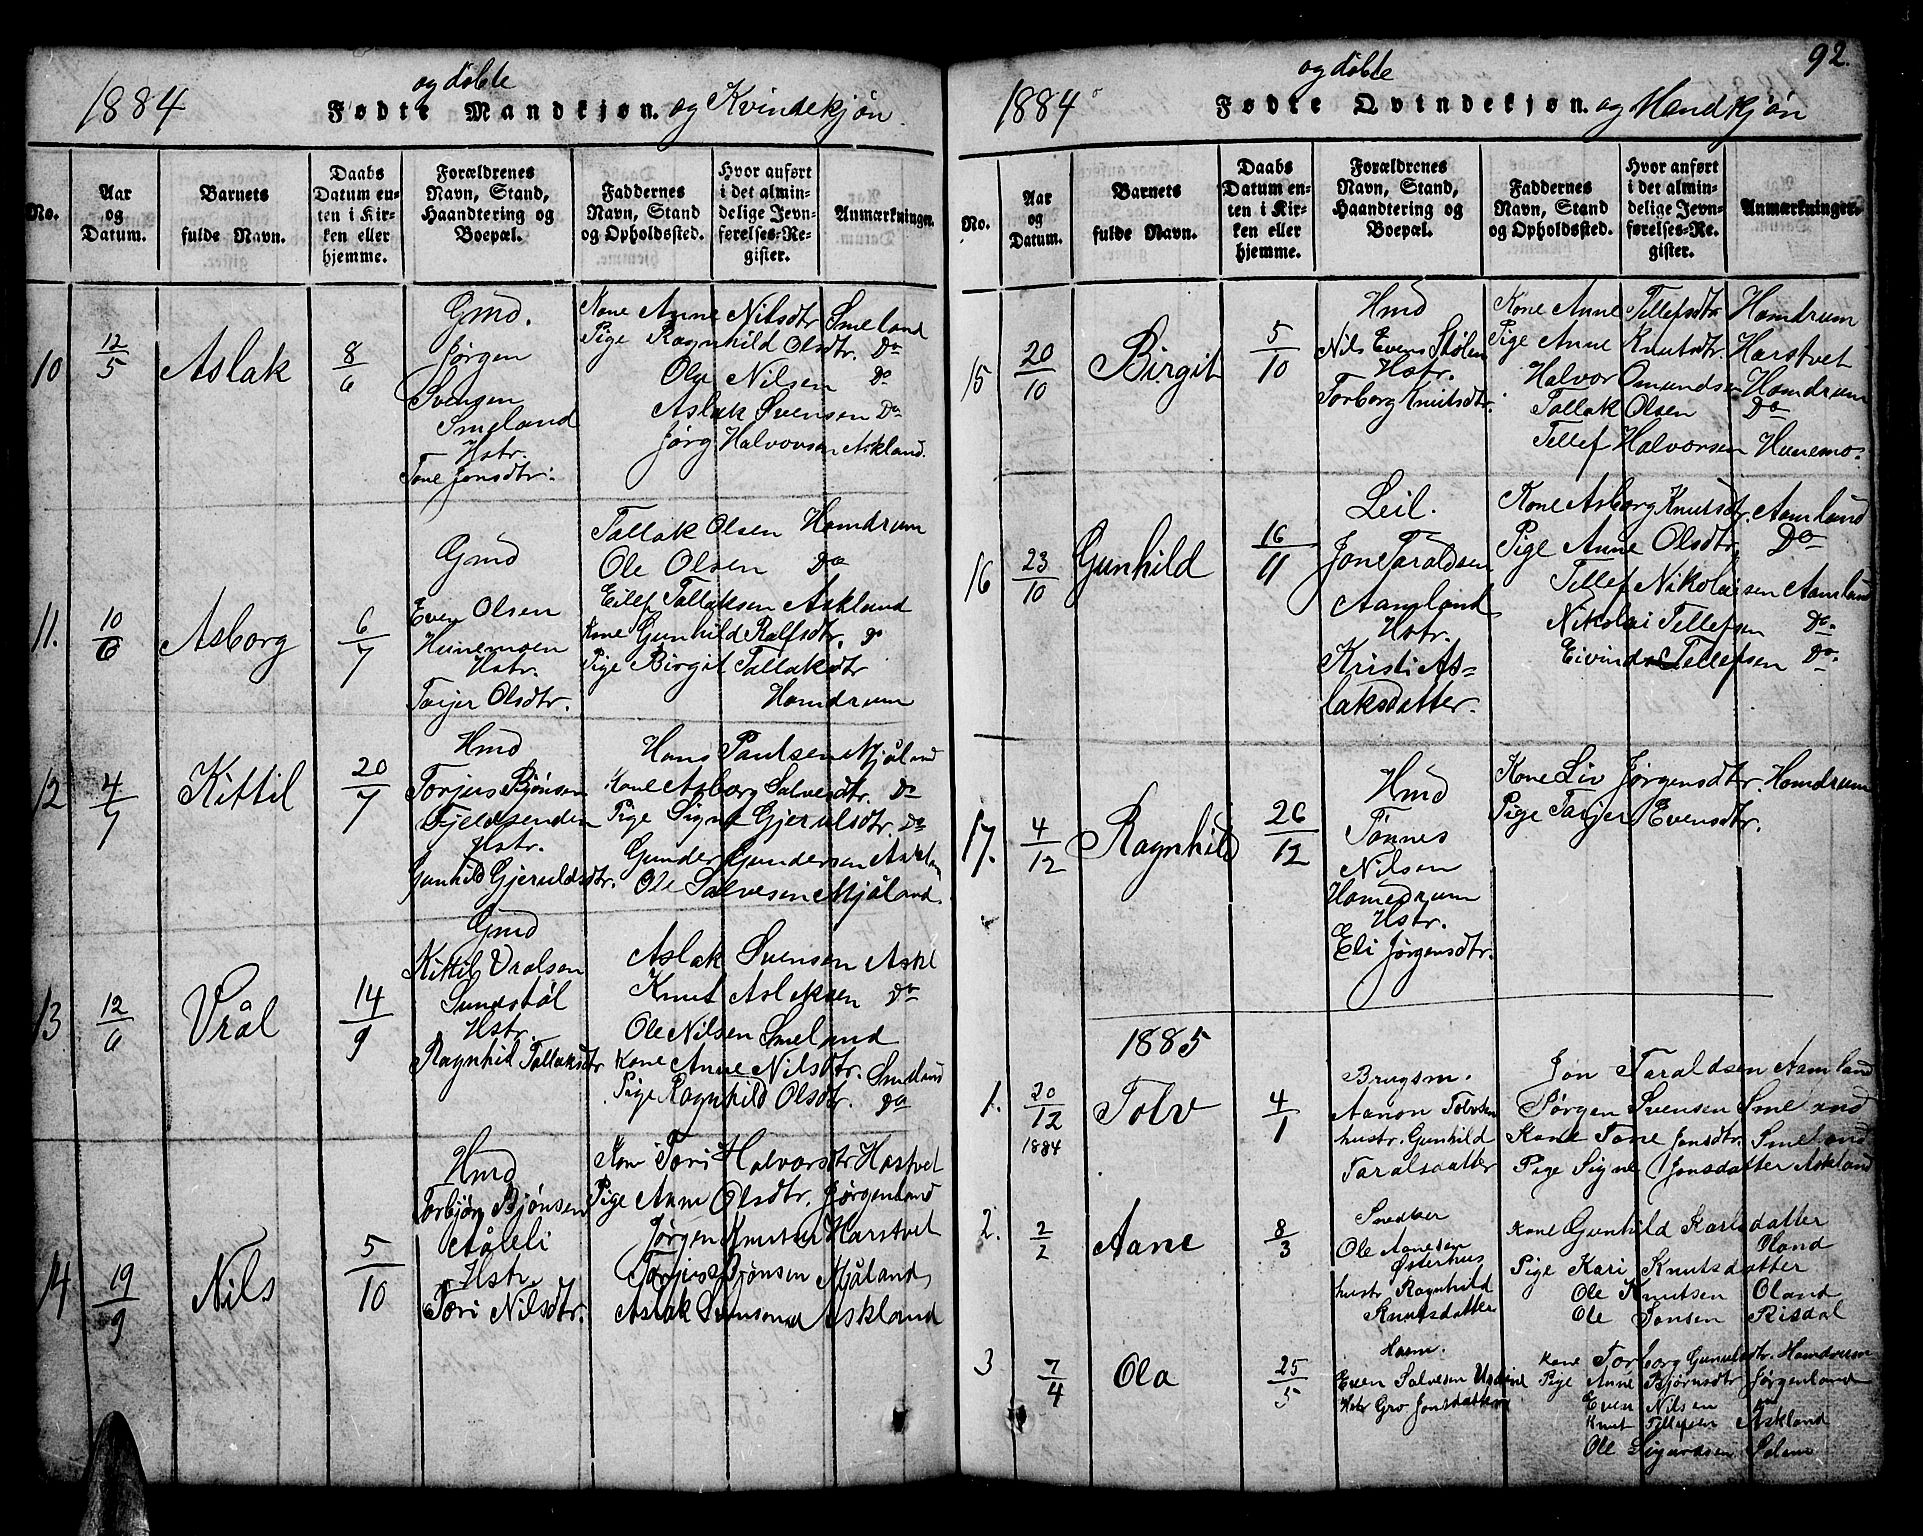 1884
og döbte
Fødte Mandkjøn. og Kvindekjøn.
No.
Aar og Datum.
Barnets fulde Navn.
Daabs Datum enten i Kirken eller hjemme.
Forældrenes Navn, Stand, Haandtering og Boepæl.
Faddernes Navn, Stand og Opholdssted.
Hvor anført i det almindelige Jevnførelses-Register.
Anmærkninger.
10
12/5
Aslak
8/6
Gmd.
Jørgen
Svensen
Smeland
Hstr.
Tone Jonsdtr.
Kone Anne Nilsdtr Smeland
Pige Ragnhild Olsdtr. Do
Ole Nilsen Do
Aslak Svensen Do
Jørg Halvorsen Askland.
11.
10/6
Asborg
6/7
Gmd
Even Olsen
Hunemoen
Hstr.
Tarjer Olsdtr.
Tallak Olsen Homdrum
Ole Olsen Do
Eilef Tallaksen Askland
Kone Gunhild Rolfsdtr. do
Pige Birgit Tallaksdtr
Homdrum
12
4/7
Kittil
20/7
Hmd
Torjus Bjönsen
Fjeldsenden
Hstr.
Gunhild Gjeruldsdtr.
Hans Paulsen Mjåland
Kone Asborg Salvesdtr. Do
Pige Signe Gjerulsdtr. Do
Gunder Gundersen Askland
Ole Salvesen Mjåland.
13
12/6
Vrål
14/9
Gmd
Kittil Vralsen
Sundstøl
Hstr.
Ragnhil Tallaksdtr
Aslak Svensen Askl
Knut Aslaksen Do
Ole Nilsen Smeland
Kone Anne Nilsdtr. Smeland
Pige Ragnhild Olsdtr. Do
14
19/9
Nils
5/10
Hmd
Torbjörn Bjönsen
Åleli
Hstr.
Tori Nilsdtr.
Kone Tori Halvorsdtr Hastvet
Pige Anne Olsdtr. Jørgenland
Jørgen Knutsen Harstvet
Torjus Bjønsen Mjåland
Aslak Svenson Askland
92.
1884
og döbte
Fødte Qvindekjøn. og Mandkjøn
No.
Aar og Datum.
Barnets fulde Navn.
Daabs Datum enten i Kirken eller hjemme.
Forældrenes Navn, Stand, Haandtering og Boepæl.
Faddernes Navn, Stand og Opholdssted.
Hvor anført i det almindelige Jevnførelses-Register.
Anmærkninger.
15
20/10
Birgit
5/10
Hmd
Nils Evens Stølen
Hstr.
Torborg Knutsdtr.
Kone Anne Tellefsdtr Homdrum
Pige Anne Knutsdtr. Harstvet
Halvor Omundsen Homdrum
Tallak Olsen Do
Tellef Halvorsen Hunemo.
16
23/10
Gunhild
16/11
Leil.
Jon Taraldsen
Aamland
Hstr.
Kristi As-
laksdatter.
Kone Asborg Knutsdtr. Aamland
Pige Anne Olsdtr. Do
Tellef Nikolaisen Aamland
Nikolai Tellefsen Do.
Eivind Tellefsen Do.
17.
4/12
Ragnhild
26/12
Hmd
Tønnes
Nilsen
Homedrum
Hstr.
Eli Jørgensdtr.
Kone Liv Jørgensdtr. Homdrum
Pige Tarjer Evensdtr.
1885
1.
20/12
1884
Tolv
4/1
Brugsm.
Aanon Tolvsen
hustr. Gunhild
Taralsdatter
Jon Taraldsen Aamland
Jørgen Svensen Smeland
Kone Tone Jonsdtr. Smeland
Pige Signe Jonsdatter Askland
2.
2/2
Aane
8/3
Snedker
Ole Aanesen
Østerhus
hustr. Ragnhild
Knutsdatter
Kone Gunhild Karlsdatter
Oland
Pige Kari Knutsdatter
Ole Knutsen Oland
Ole Jonsen Risdal
3
7/4
Ola
25/5
Husm.
Even Salvesen
Hstr Gro Jonsdatter
Kone Torborg Gunulsdtr. Homdrum
Pige Anne Bjørnsdtr Jørgenland
Even Nilsen do
Knut Tellefsen Askland
Ole Sigurdsen